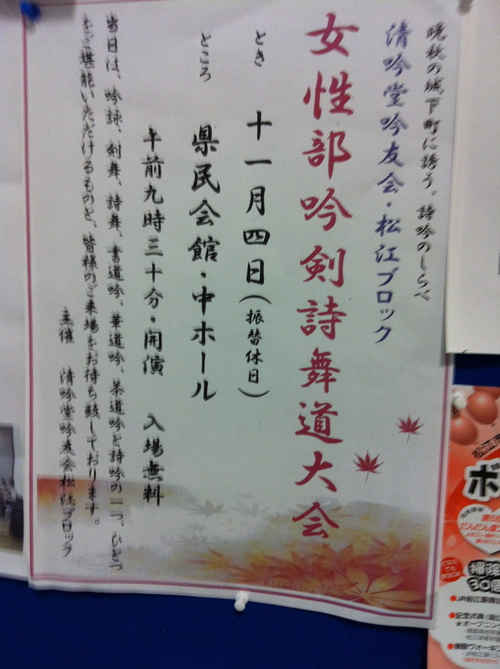 晩秋の城下町に誘う。詩吟のしらべ
清吟堂吟友会・松江ブロック
女性部吟剣詩舞道大会
とき 十一月四日(振替休日)
ところ 県民会館・中ホール
午前九時三十分・開演 入場無料
当日は、吟詠、剣舞、詩舞、書道吟、華道吟、茶道吟と詩吟の一つ、ひとつ
をご堪能いただけるものと、皆様のご来場をお待ち致しております。
主催 清吟堂吟友会松江ブロック
ボ
掃除
30周